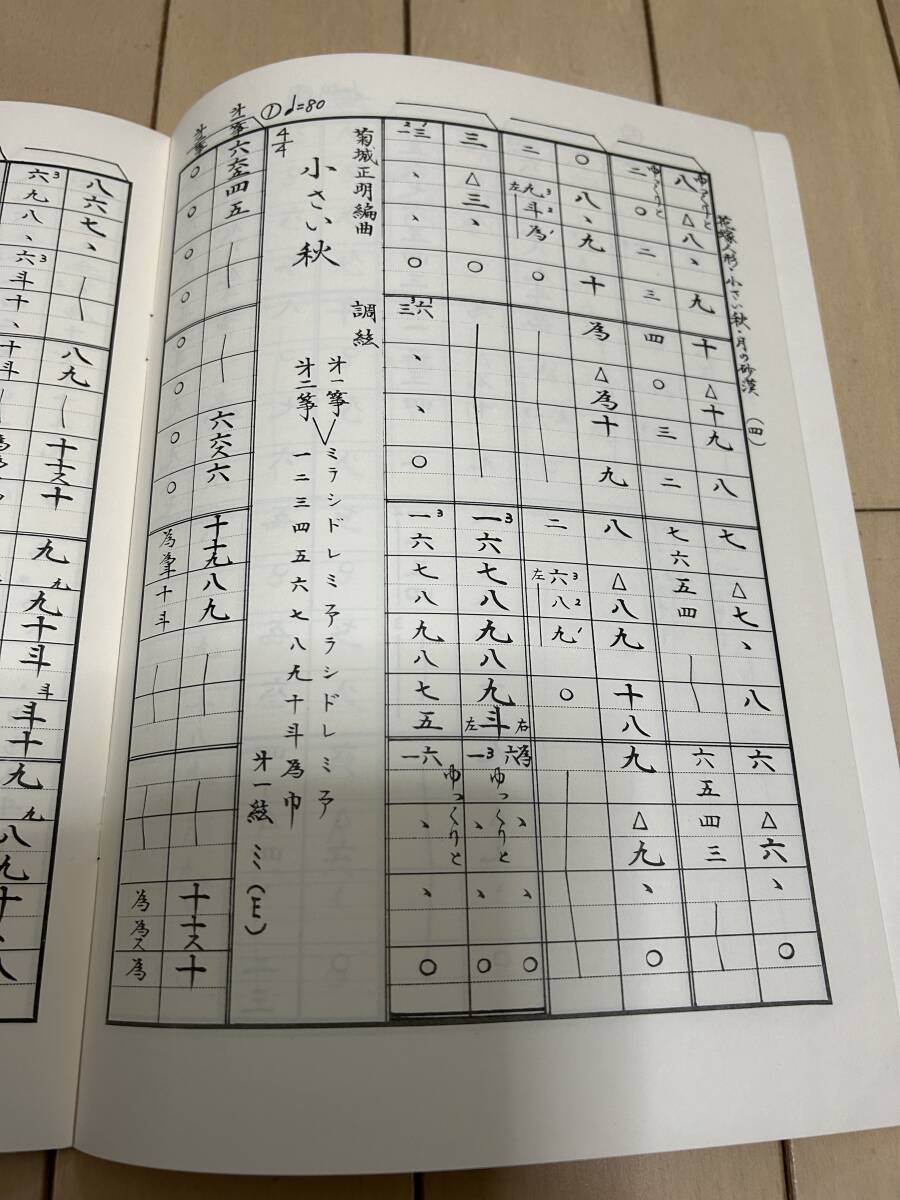 花嫁人形・小さい秋・月の砂漠 (四)
ゆっくりと
八△八、九十△十九八七△七、八六△六、○
ゆっくりと
二○二三四○三二七六五四六五四三
○八、九十為△為十九八△八九十八九△九、○
二左九3斗2為1○二左六3八2九1○
三△三、○一3六七八九八九左斗右一3六為、、、、○○
ゆっくりと
、、○、、○一3六七八九八七五一六、、○
ゆっくりと
菊城正明編曲
調絃
才一箏
才二箏
ミラシドレミファラシドレミファ
一二三四五六七八九十斗為巾
才一絃 ミ(E)
小さい秋
4/4
① ♩=80
才一箏
六六五四五六六ス六十十九八九十十ス十
才二箏
○○○○○○○○為為十斗為為ス為
八六七、八九十十ス十九九九十斗斗斗十九九八九十、八
六3九八、六3斗十、十斗